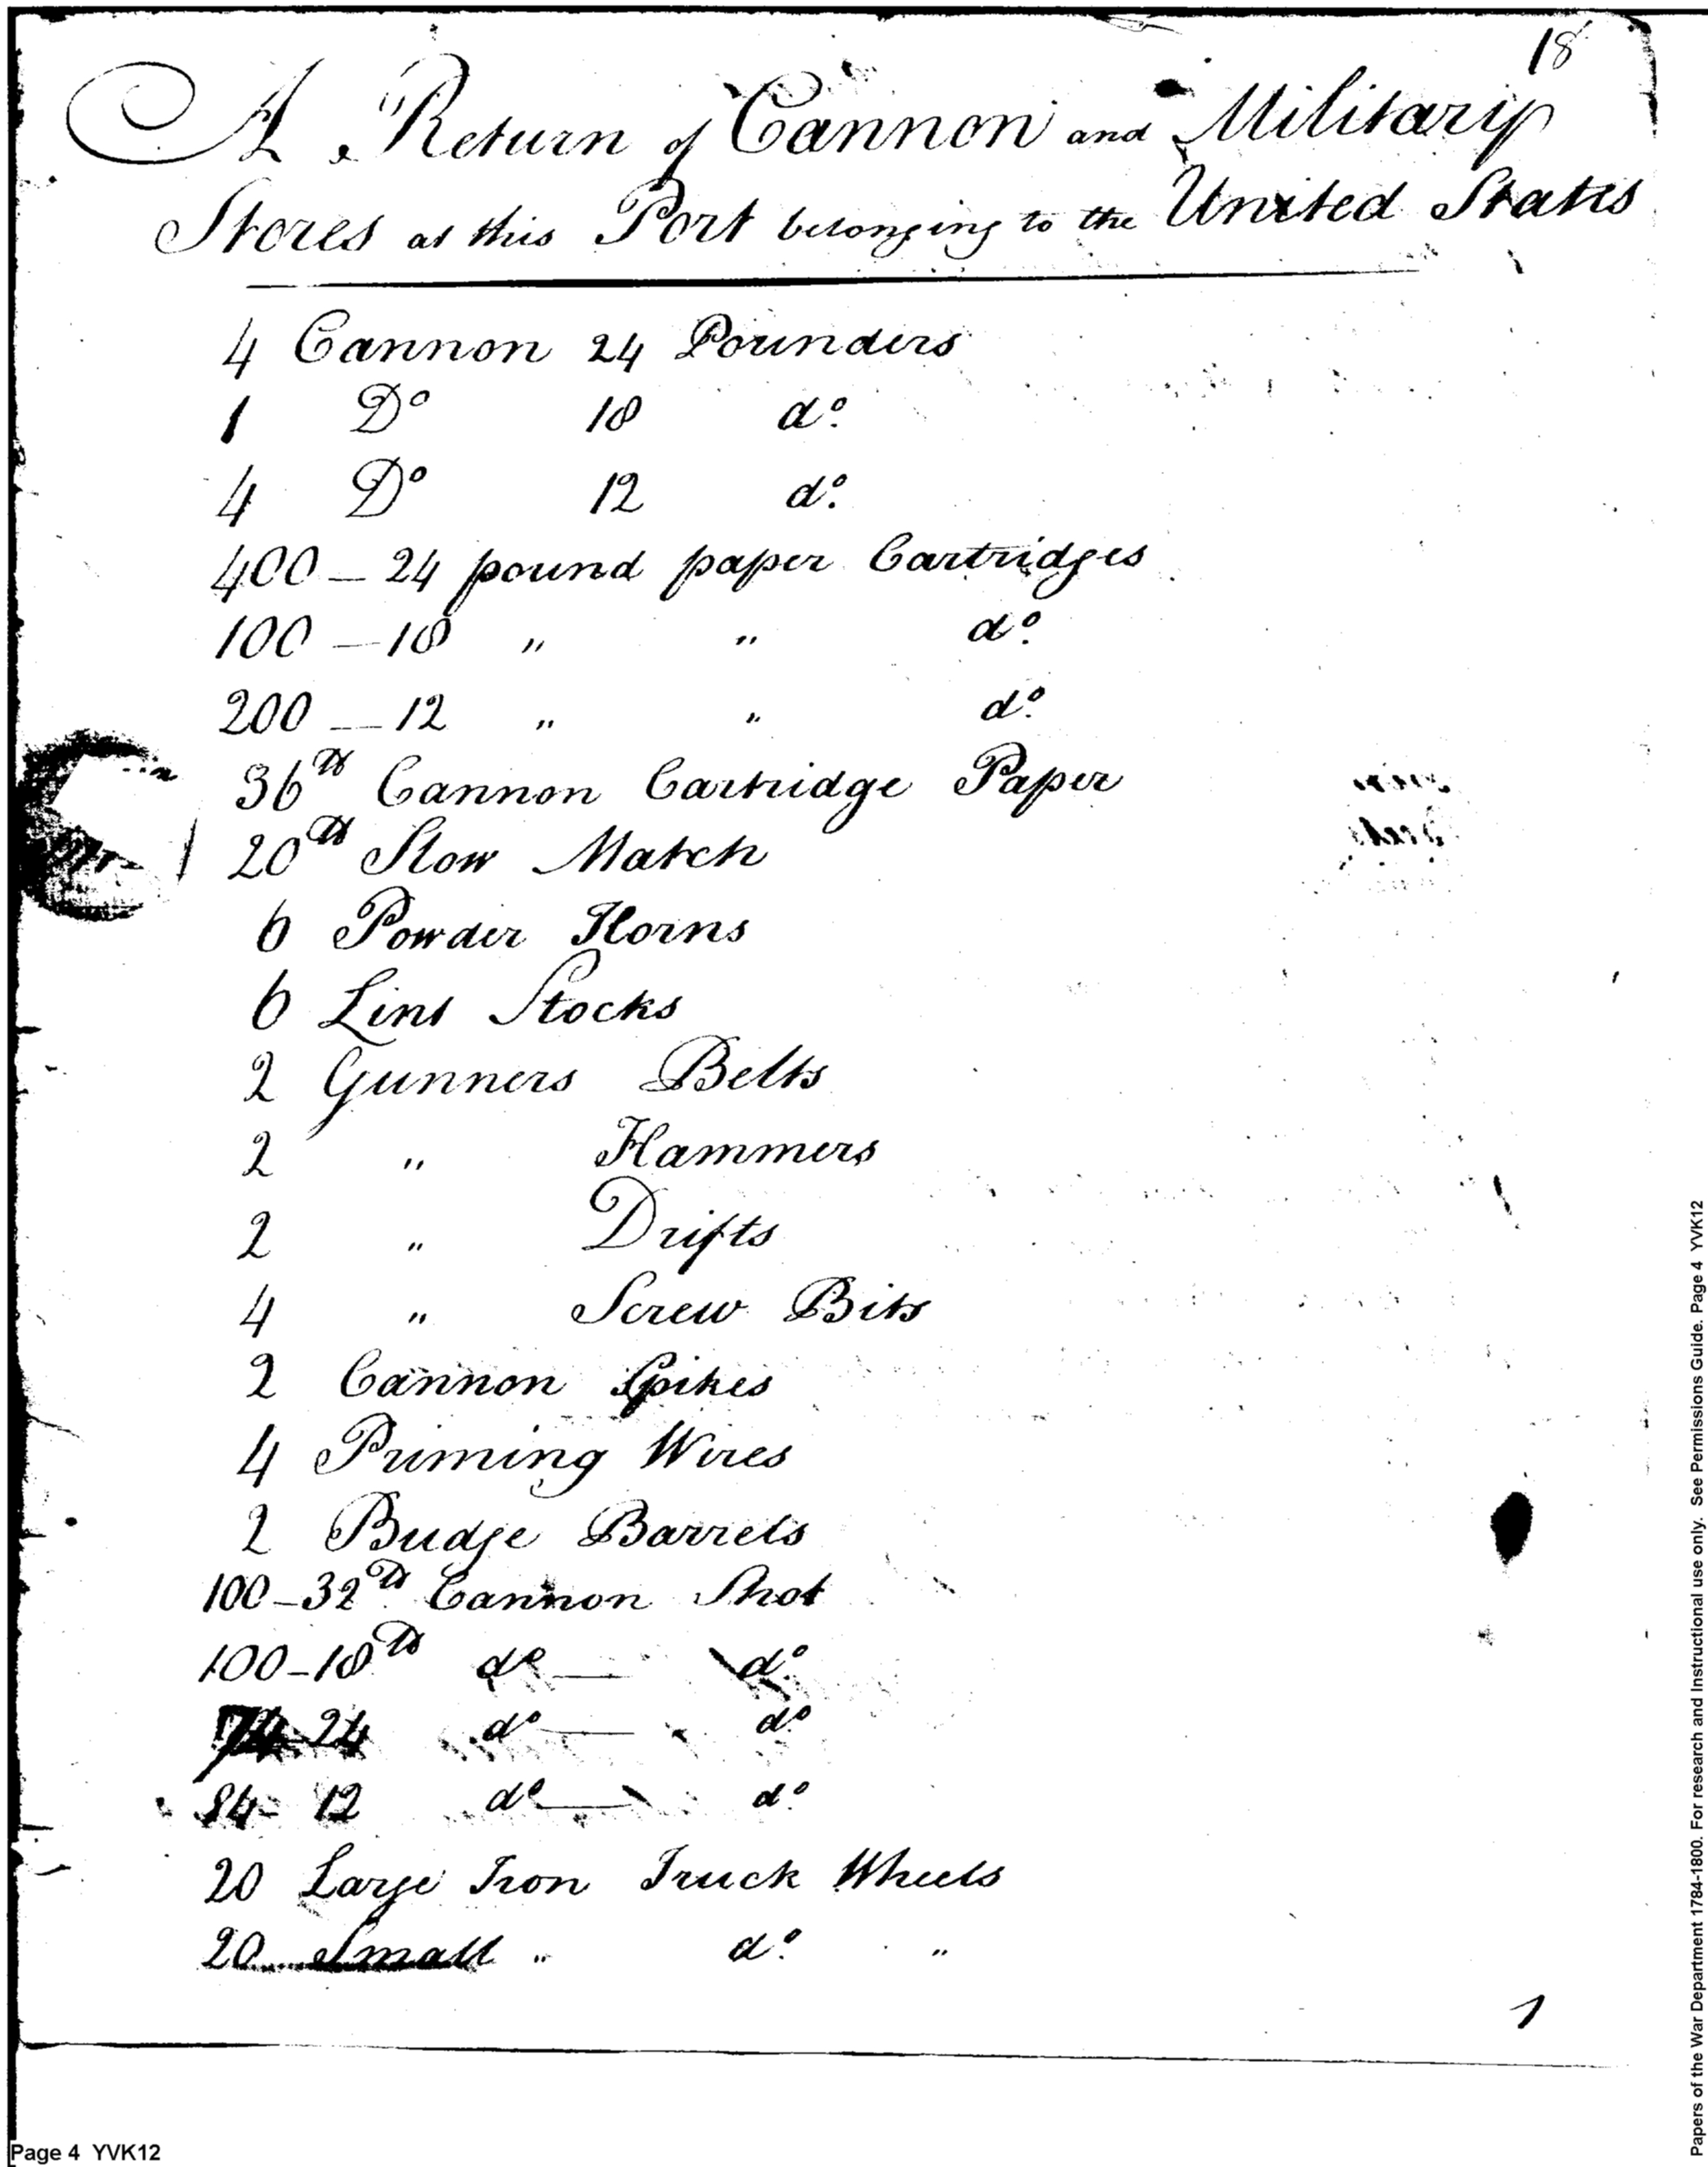 18
A Return of Cannon and Military
Stores at this Port belonging to the United States
4 Cannon 24 Pounders
1 Do 18 do.
4 Do 12 do.
400 — 24 pound paper Cartridges
100 — 18 " " do.
200 — 12 " " do.
36 lb Cannon Cartridge Paper
20 lb Slow Match
6 Powder Horns
6 Lint Stocks
2 Gunners Belts
2 " Hammers
2 " Drifts
4 " Screw Bits
2 Cannon Spikes
4 Priming Wires
2 Budge Barrels
100 – 32 lb Cannon Shot
100 – 18 lb do — do.
74 – 24 do — do.
84 – 12 do — do.
20 Large Iron Truck Wheels
20 Small " do. "
1
Page 4 YVK12
Papers of the War Department 1784-1800. For research and Instructional use only. See Permissions Guide. Page 4 YVK12